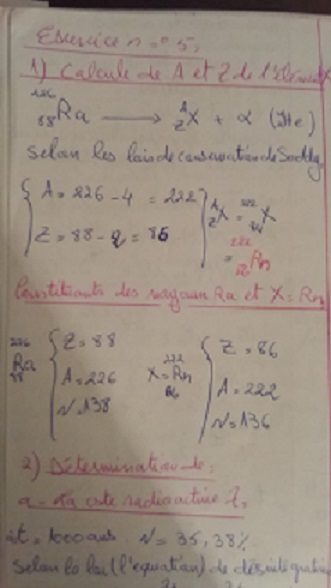 Exercice n = ° 5:
1) Calcule de A et Z de l'élément X
²²⁶₈₈Ra ⟶ ᴬ_Z X + α (He)
Selon les lois de conservation de Soddy
A = 226 - 4 = 222 ᴬ_Z X = ²²² X
Z = 88 - 2 = 86 = ²²² Rn
Constituants des noyaux Ra et X = Rn
²²⁶₈₈Ra Z = 88 X = ²²²₈₆Rn Z = 86
A = 226 A = 222
N = 138 N = 136
2) Détermination de:
a - radioactive
t = 1000 ans N = 35,38%
Selon la loi (l'equation) de désintégration